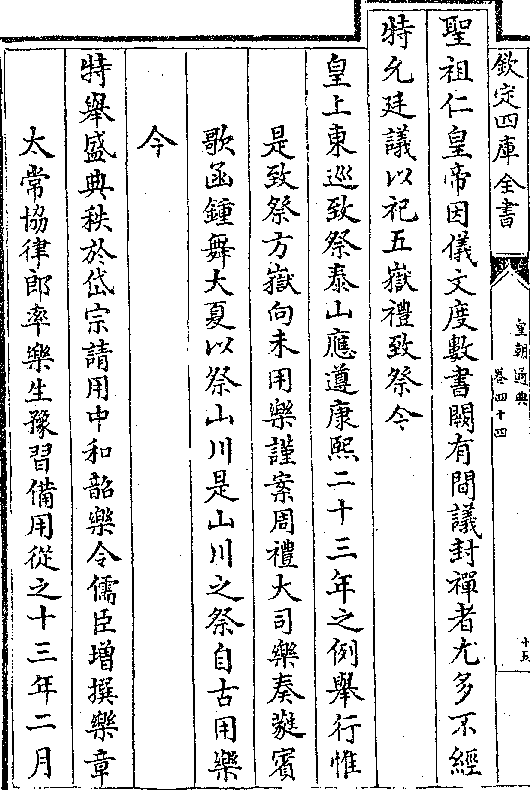 欽定四庫全書
皇朝通典
卷四十四
十五
聖祖仁皇帝因儀文度數書闕有間議封禪者尤多不經
特允廷議以祀五嶽禮致祭今
皇上東巡致祭泰山應遵康熙二十三年之例舉行惟
是致祭方嶽向未用樂謹案周禮大司樂奏蕤賓
歌函鍾舞大夏以祭山川是山川之祭自古用樂
今
特舉盛典秩於岱宗請用中和韶樂令儒臣增撰樂章
太常協律郎率樂生豫習備用從之十三年二月